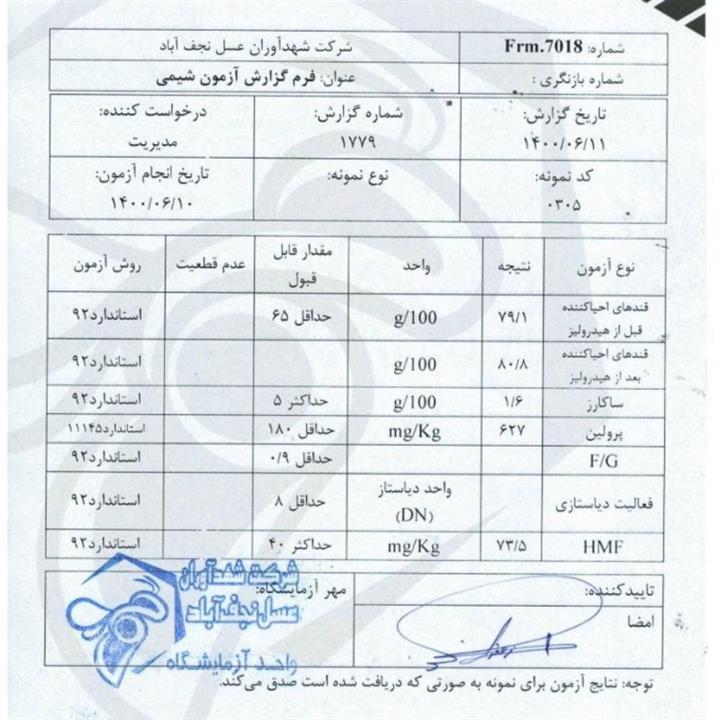 شماره: Frm.7018
شرکت شهدآوران عسل نجف آباد
شماره بازنگری :
عنوان: فرم گزارش آزمون شیمی
تاریخ گزارش:
۱۴۰۰/۰۶/۱۱
شماره گزارش:
۱۷۷۹
درخواست کننده:
مدیریت
کد نمونه:
۰۳۰۵
نوع نمونه:
تاریخ انجام آزمون:
۱۴۰۰/۰۶/۱۰
نوع آزمون نتیجه واحد مقدار قابل قبول عدم قطعیت روش آزمون
قندهای احیاکننده قبل از هیدرولیز ۷۹/۱ g/100 حداقل ۶۵ استاندارد۹۲
قندهای احیاکننده بعد از هیدرولیز ۸۰/۸ g/100 استاندارد۹۲
ساکارز ۱/۶ g/100 حداکثر ۵ استاندارد۹۲
پرولین ۶۲۷ mg/Kg حداقل ۱۸۰ استاندارد۱۱۱۴۵
F/G حداقل ۰/۹ استاندارد۹۲
فعالیت دیاستازی واحد دیاستاز (DN) حداقل ۸ استاندارد۹۲
HMF ۷۳/۵ mg/Kg حداکثر ۴۰ استاندارد۹۲
تاییدکننده:
امضا
مهر آزمایشگاه:
شرکت شهدآوران
عسل نجف‌آباد
واحد آزمایشگاه
توجه: نتایج آزمون برای نمونه به صورتی که دریافت شده است صدق می‌کند.